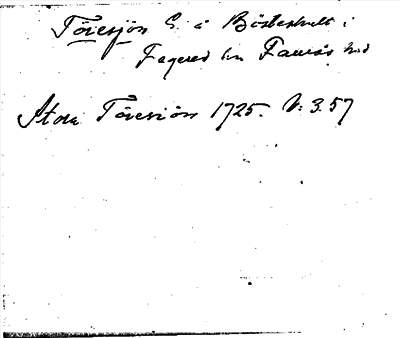 Töresjön S. å Bösteshult i
Fagered sn Faurås hd
Stora Töresiön 1725. V: 3.57